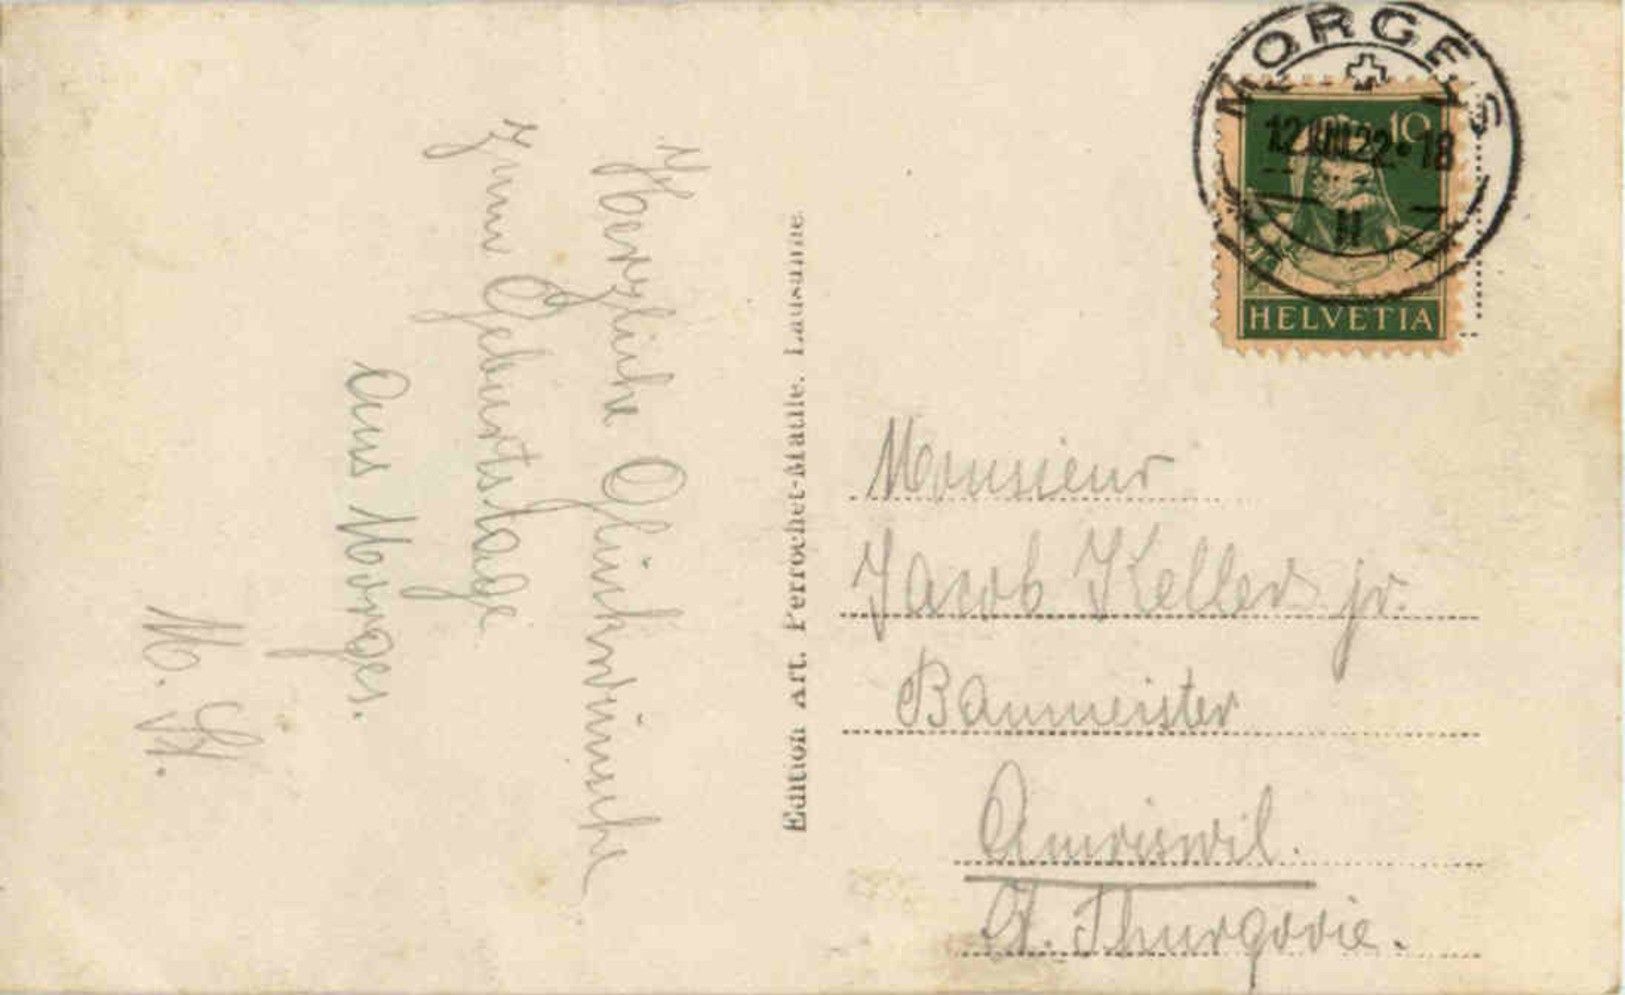 Herzliche Glückwünsche
zum Geburtstage
aus Morges.
M. H.
Edition Art. Perrochet-Matile, Lausanne.
MORGES
12.VIII.22·18
II
10
HELVETIA
Monsieur
Jacob Keller jr.
Baumeister
Amriswil.
Ct. Thurgovie.